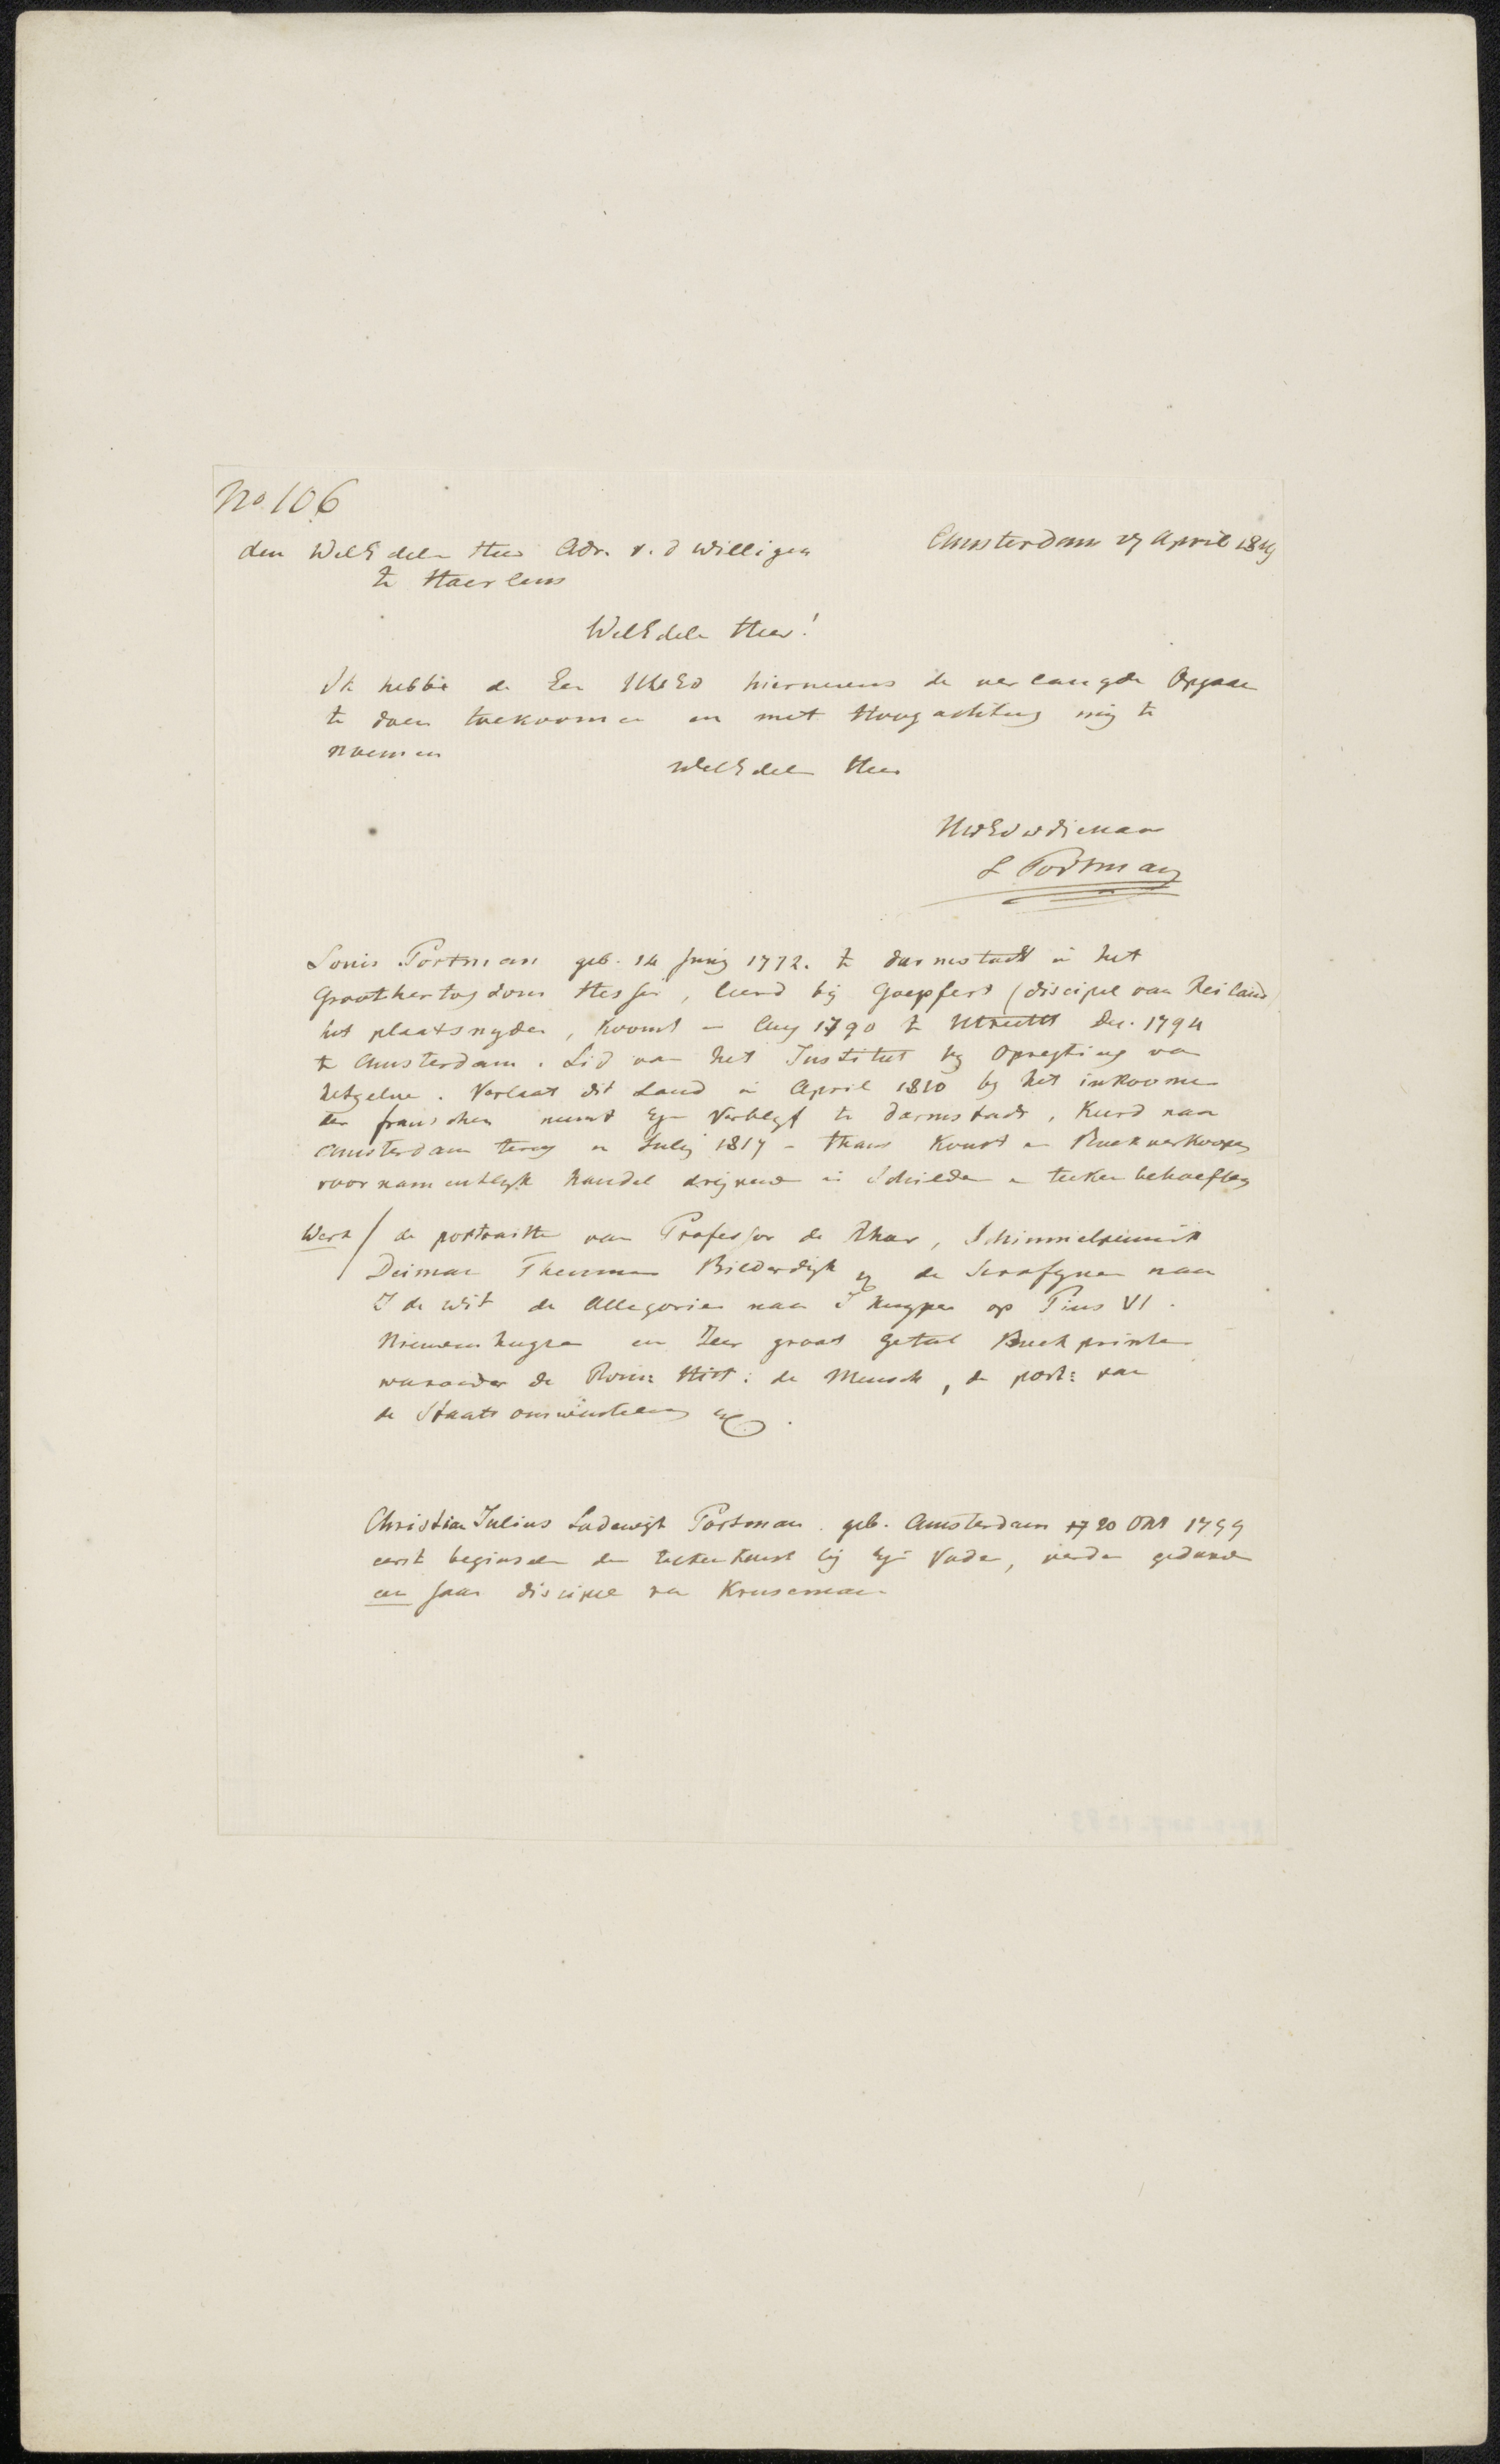 No. 106
den WelEdeln Heer Adr. v. d Willigen
te Haerlem
Amsterdam 27 April 18
WelEdele Heer!
Ik hebbe de Eer UWEd hiernevens de verlangde Opgaae
te doen toekoomen en met Hoogachting mij te
noemen
WelEdele Heer
UwEd w dienaar
L Portman
Louis Portman geb. 14 Junij 1772. te darmstadt in het
Groothertogdom Hessen, leerd bij Goepfert (discipel van Heiland
het plaatsnyden, koomt in Aug 1790 te Utrecht Dec. 1794
te Amsterdam. Lid van het Institut by Opregting van
hetzelve. Verlaat dit Land in April 1810 by het inkoomen
der franschen neemt zyn Verblyf te Darmstadt, Keerd naar
Amsterdam terug in July 1817 - thans Konst en Boekverkooper
voornamentlyk handel dryvend in Schilder en teeken behoeften
Werk / de portraitte van Professor de Rhoer, Schimmelpennik
Deiman Bilderdijk de Serafynen naar
J de Wit de Allegorien naar J Kuyper op Pius VI.
Nieuwenhuyzen en Zeer groot getal Boekprinten
waaronder de Rom: Hist: de Mensch, de port: van
de Staats omwenteling &c.
Christian Julius Lodewijk Portman. geb. Amsterdam 17 20 Oct 1799
eerste beginselen der teekenkunst bij zyn Vader, verder gedurend
een Jaar discipel van Kruseman